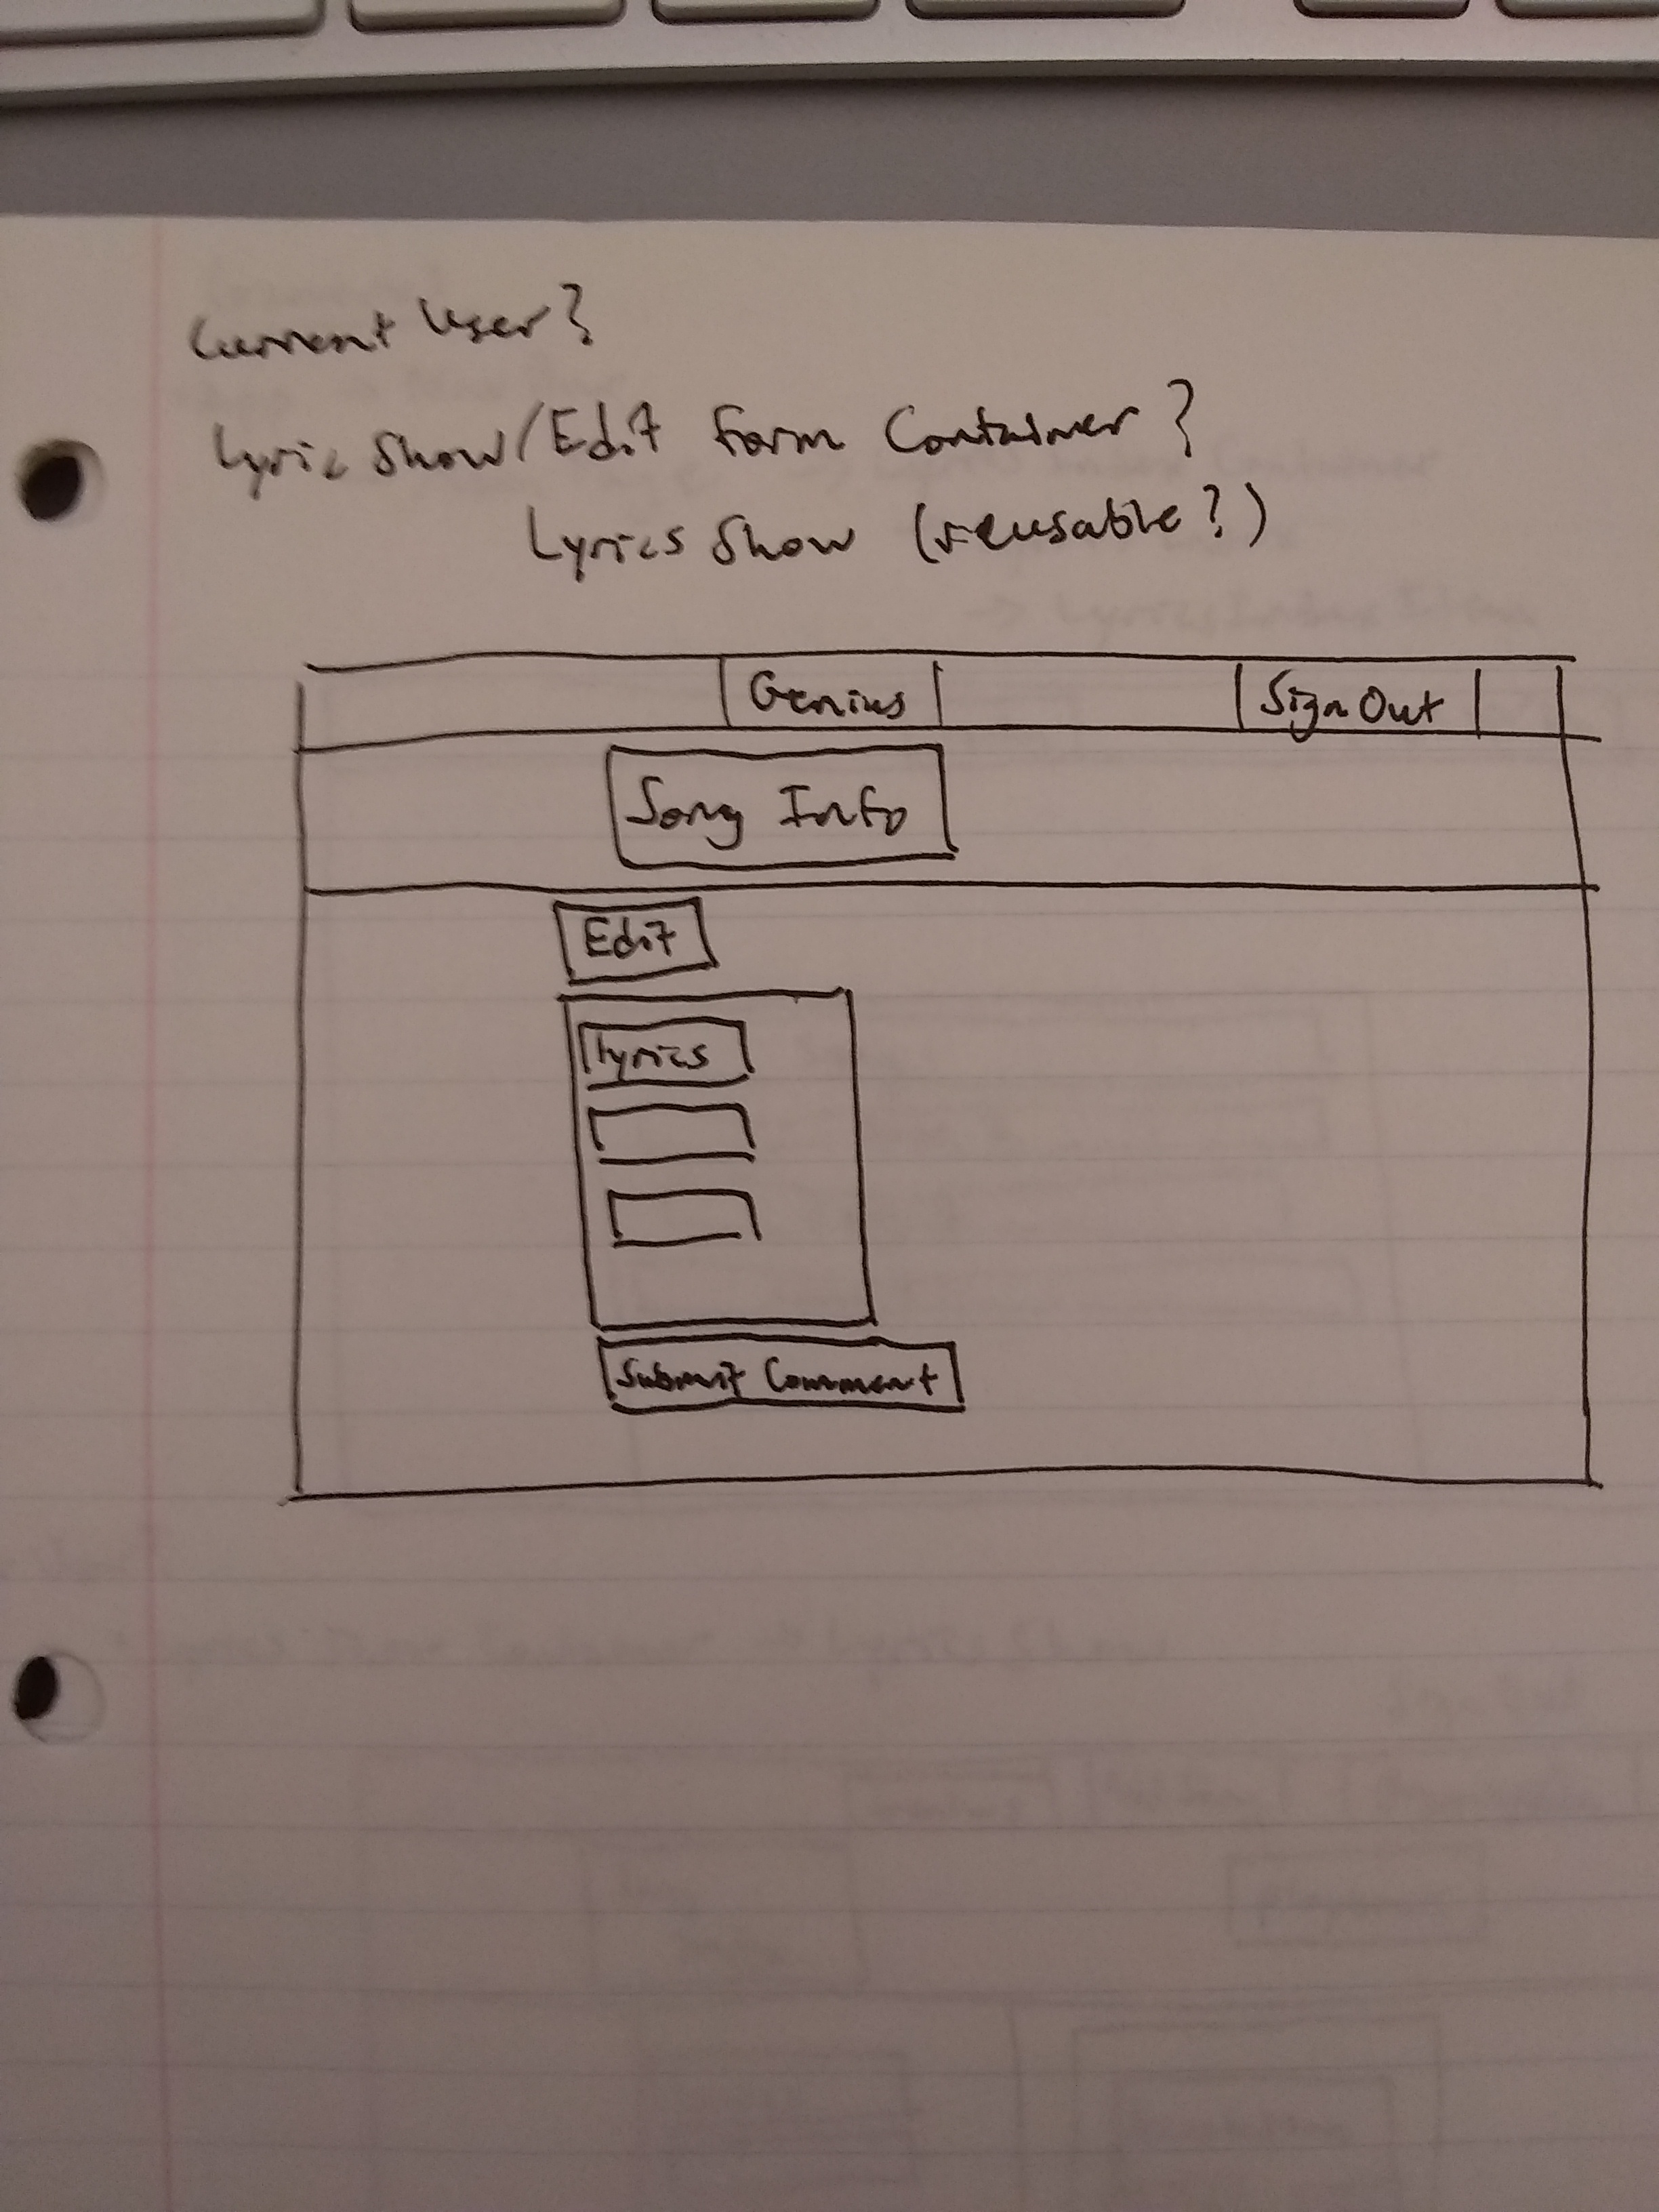 Current User?
Lyric Show/Edit Form Container?
Lyrics Show (reusable?)
Genius Sign Out
Song Info
Edit
Lyrics
Submit Comment